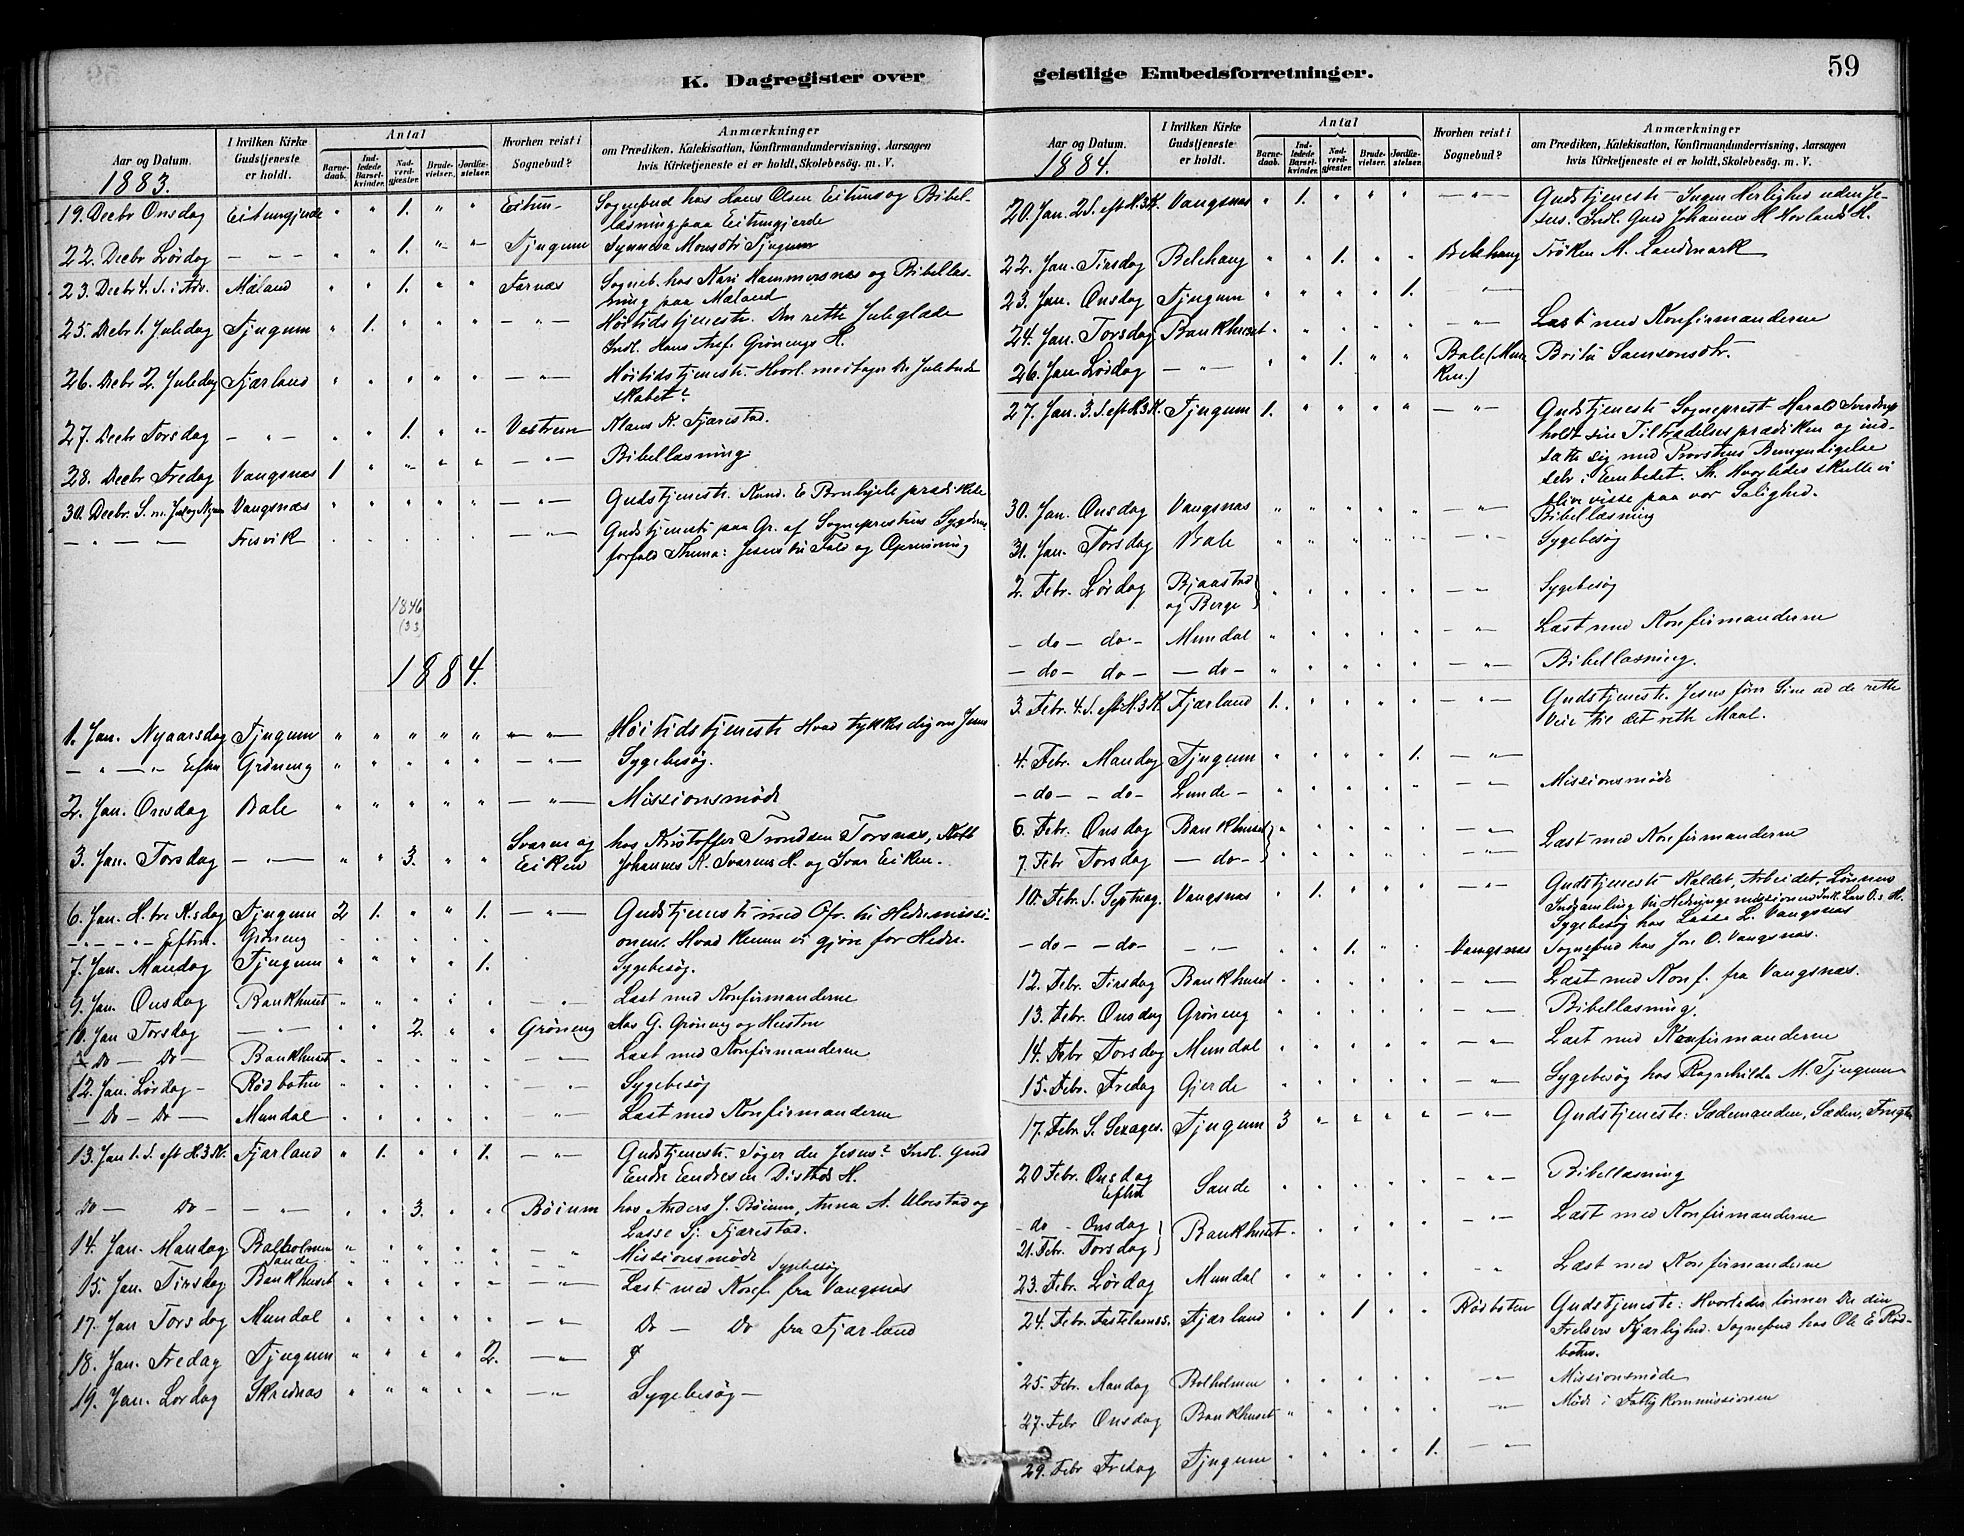 K. Dagregister over geistlige Embedsforretninger. 59
Aar og Datum. 1883.
I hvilken Kirke Gudstjeneste er holdt.
Antal
Barnedaab. Indledede Barselkvinder. Nadverdgjester. Brudevielser. Jordfæstelser.
Hvorhen reist i Sognebud?
Anmærkninger
om Prædiken, Katekisation, Konfirmandundervisning, Aarsagen
hvis Kirketjeneste ei er holdt, Skolebesög. m. V.
19. Decbr Onsdag Eitungjerde " " 1. " " Eitun- Sognebud hos Hans Olsen Eituns og Bibel-
læsning paa Eitungjerde
22. Decbr Lördag — " — " " 1. " " Tjugum Synneva Monsdtr Tjugum
23. Decbr 4. S. i Adv. Mæland " " 1. " " Farnæs Sogneb. hos Kari Hammersnæs og Bibellæs-
ning paa Mæland
25. Decbr 1. Juledag Tjugum " 1. " " " — " — Höitidstjeneste. Den rette Juleglæde
Indl. Hans Grönengs H.
26. Decbr 2. Juledag Fjærland " " " " " — " — Höitidstjeneste. Hvorl. modtages De Julebud-
skabet?
27. Decbr Torsdag — " — " " 1. " " Vestrem Klaus K. Fjærestad.
28. Decbr Fredag Vangsnæs 1 " " " " — " — Bibellæsning
30. Decbr. S. m. Jul og Nyaar Vangsnæs " " " " " — " — Gudstjeneste. Kand. E prædikede
— " — " — Fresvik — " — Gudstjeneste paa Gr. af Sogneprestens Sygdoms-
forfald Thema: Jesus til Fald og Opreisning
1846
(33)
1884.
1. Jan. Nyaarsdag Tjugum " " " " " — " — Höitidstjeneste Hvad tykkes dig om Jesus
— " — " Eftm Gröneng " " " " " — " — Sygebesög.
2. Jan. Onsdag Bale " " " " " — " — Missionsmöde
3. Jan. Torsdag — " — " " 3. " " Sværen og Eiken hos Kristoffer Trondsen Torsnæs,
Johannes K. Sværens H. og Ivar Eiken.
6. Jan. H. tre K. dag Tjugum 2 1. " " 1. — " — Gudstjeneste med Ofr. til Hedemissi-
— " — " — Eftm. Gröneng onen. Hvad kunne vi gjöre for Heden.
7. Jan. Mandag Tjugum " " " " 1. Sygebesög.
9. Jan. Onsdag Bankhuset " " " " " — " — Læst med Konfirmanderne
10. Jan Torsdag — " — " " 2. " " Gröneng Hos G. Gröneng og Hustru
— Do — Do — Bankhuset " " " " " — " — Læst med Konfirmanderne
12. Jan. Lördag — Rödbotn " " " " " — " — Sygebesög
— Do — Do — Mundal " " " " " — " — Læst med Konfirmanderne
13. Jan 1. S. eft H3K. Fjærland " 1. " " 1. — " — Gudstjeneste. Söger du Jesus? Indl. Gmd
Endre Endresen Distads H.
Do — Do — — " — " " 3. " " Böium hos Anders J. Böium, Anna A. Ulvestad og
Lasse Sj. Fjærestad.
14. Jan. Mandag Balholmen " " " " " — " Missionsmöde
Sande. " " " " " — " Sygebesög
15. Jan. Tirsdag Bankhuset " " " " " — " — Læst med Konf. fra Vangsnæs
17. Jan Torsdag Mundal " " " " " — " Do — Do fra Fjærland
18. Jan. Fredag Tjugum " " " " 2. — " —
19. Jan. Lördag Skrednæs " " " " " — " — Sygebesög —
Aar og Datum. 1884.
I hvilken Kirke Gudstjeneste er holdt.
Antal
Barnedaab. Indledede Barselkvinder. Nadverdgjester. Brudevielser. Jordfæstelser.
Hvorhen reist i Sognebud?
Anmærkninger
om Prædiken, Katekisation, Konfirmandundervisning, Aarsagen
hvis Kirketjeneste ei er holdt, Skolebesög. m. V.
20. Jan. 2 S. eft H.3K. Vangsnæs " 1. " " " — " — Gudstjeneste. Ingen Herlighed uden Je-
sus. Indl. Gmd Johannes H. Norlands H.
22. Jan. Tirsdag Belehaug " " 1. " " Belehaug Fröken M. Landmark
23. Jan. Onsdag Tjugum " " " " 1. — " —
24. Jan. Torsdag Bankhuset " " " " " — " — Læst med Konfirmanderne
26. Jan. Lördag — " — " " 1. " " Bale (Munken.) Brita Samsonsdtr.
27. Jan. 3. S. eft H3K. Tjugum 1. " " " " — " — Gudstjeneste. Sogneprest Harald Sverdrup
holdt sin Tiltrædelsesprædiken og ind-
satte sig med Provstens Bemyndigelse
selv i Embedet. Th. Hvorledes skulle vi
blive visse paa vor Salighed.
30. Jan. Onsdag Vangsnæs " " " " " — " — Bibellæsning
31. Jan. Torsdag Bale " " " " " — " — Sygebesög
2. Febr. Lördag Bjaastad og Berge " " " " " — " — Sygebesög
— do — do — Mundal " " " " " — " — Læst med Konfirmanderne
— do — do — — do — " " " " " — " — Bibellæsning.
3. Febr. 4. S. eft H.3K. Fjærland 1. " " " " — " — Gudstjeneste. Jesus förer Sine ad de rette
Veie til det rette Maal.
4. Febr. Mandag Tjugum " " " " 1. — " —
— do — — do — Lunde — " " " " " — " — Missionsmöde
6. Febr. Onsdag Bankhuset " " " " " — " —
7. Febr Torsdag — do — — " — Læst med Konfirmanderne
10. Febr. S. Septuag. Vangsnæs " 1. " " " — " — Gudstjeneste Kaldet, Arbeidet, Lönnen
Indsamling til Hedningemissionen Ind. Lars O.s H.
Sygebesög hos Lasse L. Vangsnæs
— do — — do — — " — " " 1. " " Vangsnæs Sognebud hos Jon O. Vangsnæs.
12. Febr. Tirsdag Bankhuset " " " " " — " — Læst med Konf. fra Vangsnæs.
13. Febr. Onsdag Gröneng " " " " " — " — Bibellæsning.
14. Febr Torsdag Mundal " " " " " — " — Læst med Konfirmanderne
15. Febr. Fredag Gjerde " " " " " — " — Sygebesög hos Ragnhilda M. Tjugum
17. Febr. S. Sexages. Tjugum 3 " " " " — " — Gudstjeneste: Sædemanden, Sæden, Frugten
20 Febr. Onsdag Eftm Sande " " " " " — " — Bibellæsning
— do — Onsdag
21. Febr. Torsdag Bankhuset " " " " " — " — Læst med Konfirmanderne
23. Febr. Lördag Mundal " " " " " Læst med Konfirmanderne
24. Febr. Fastelavns. Fjærland " " 1 " " Rödbotn Gudstjeneste: Hvorledes lönner Du din
Frelsers Kjærlighed. Sognebud hos Ole E Röd-
botn.
25. Febr. Mandag Balholmen " " " " " — " — Missionsmöde
27. Febr Onsdag Bankhuset " " " " " — " Möde i Fattigkommissionen
29. Febr Fredag Tjugum " " " " 1. — " —